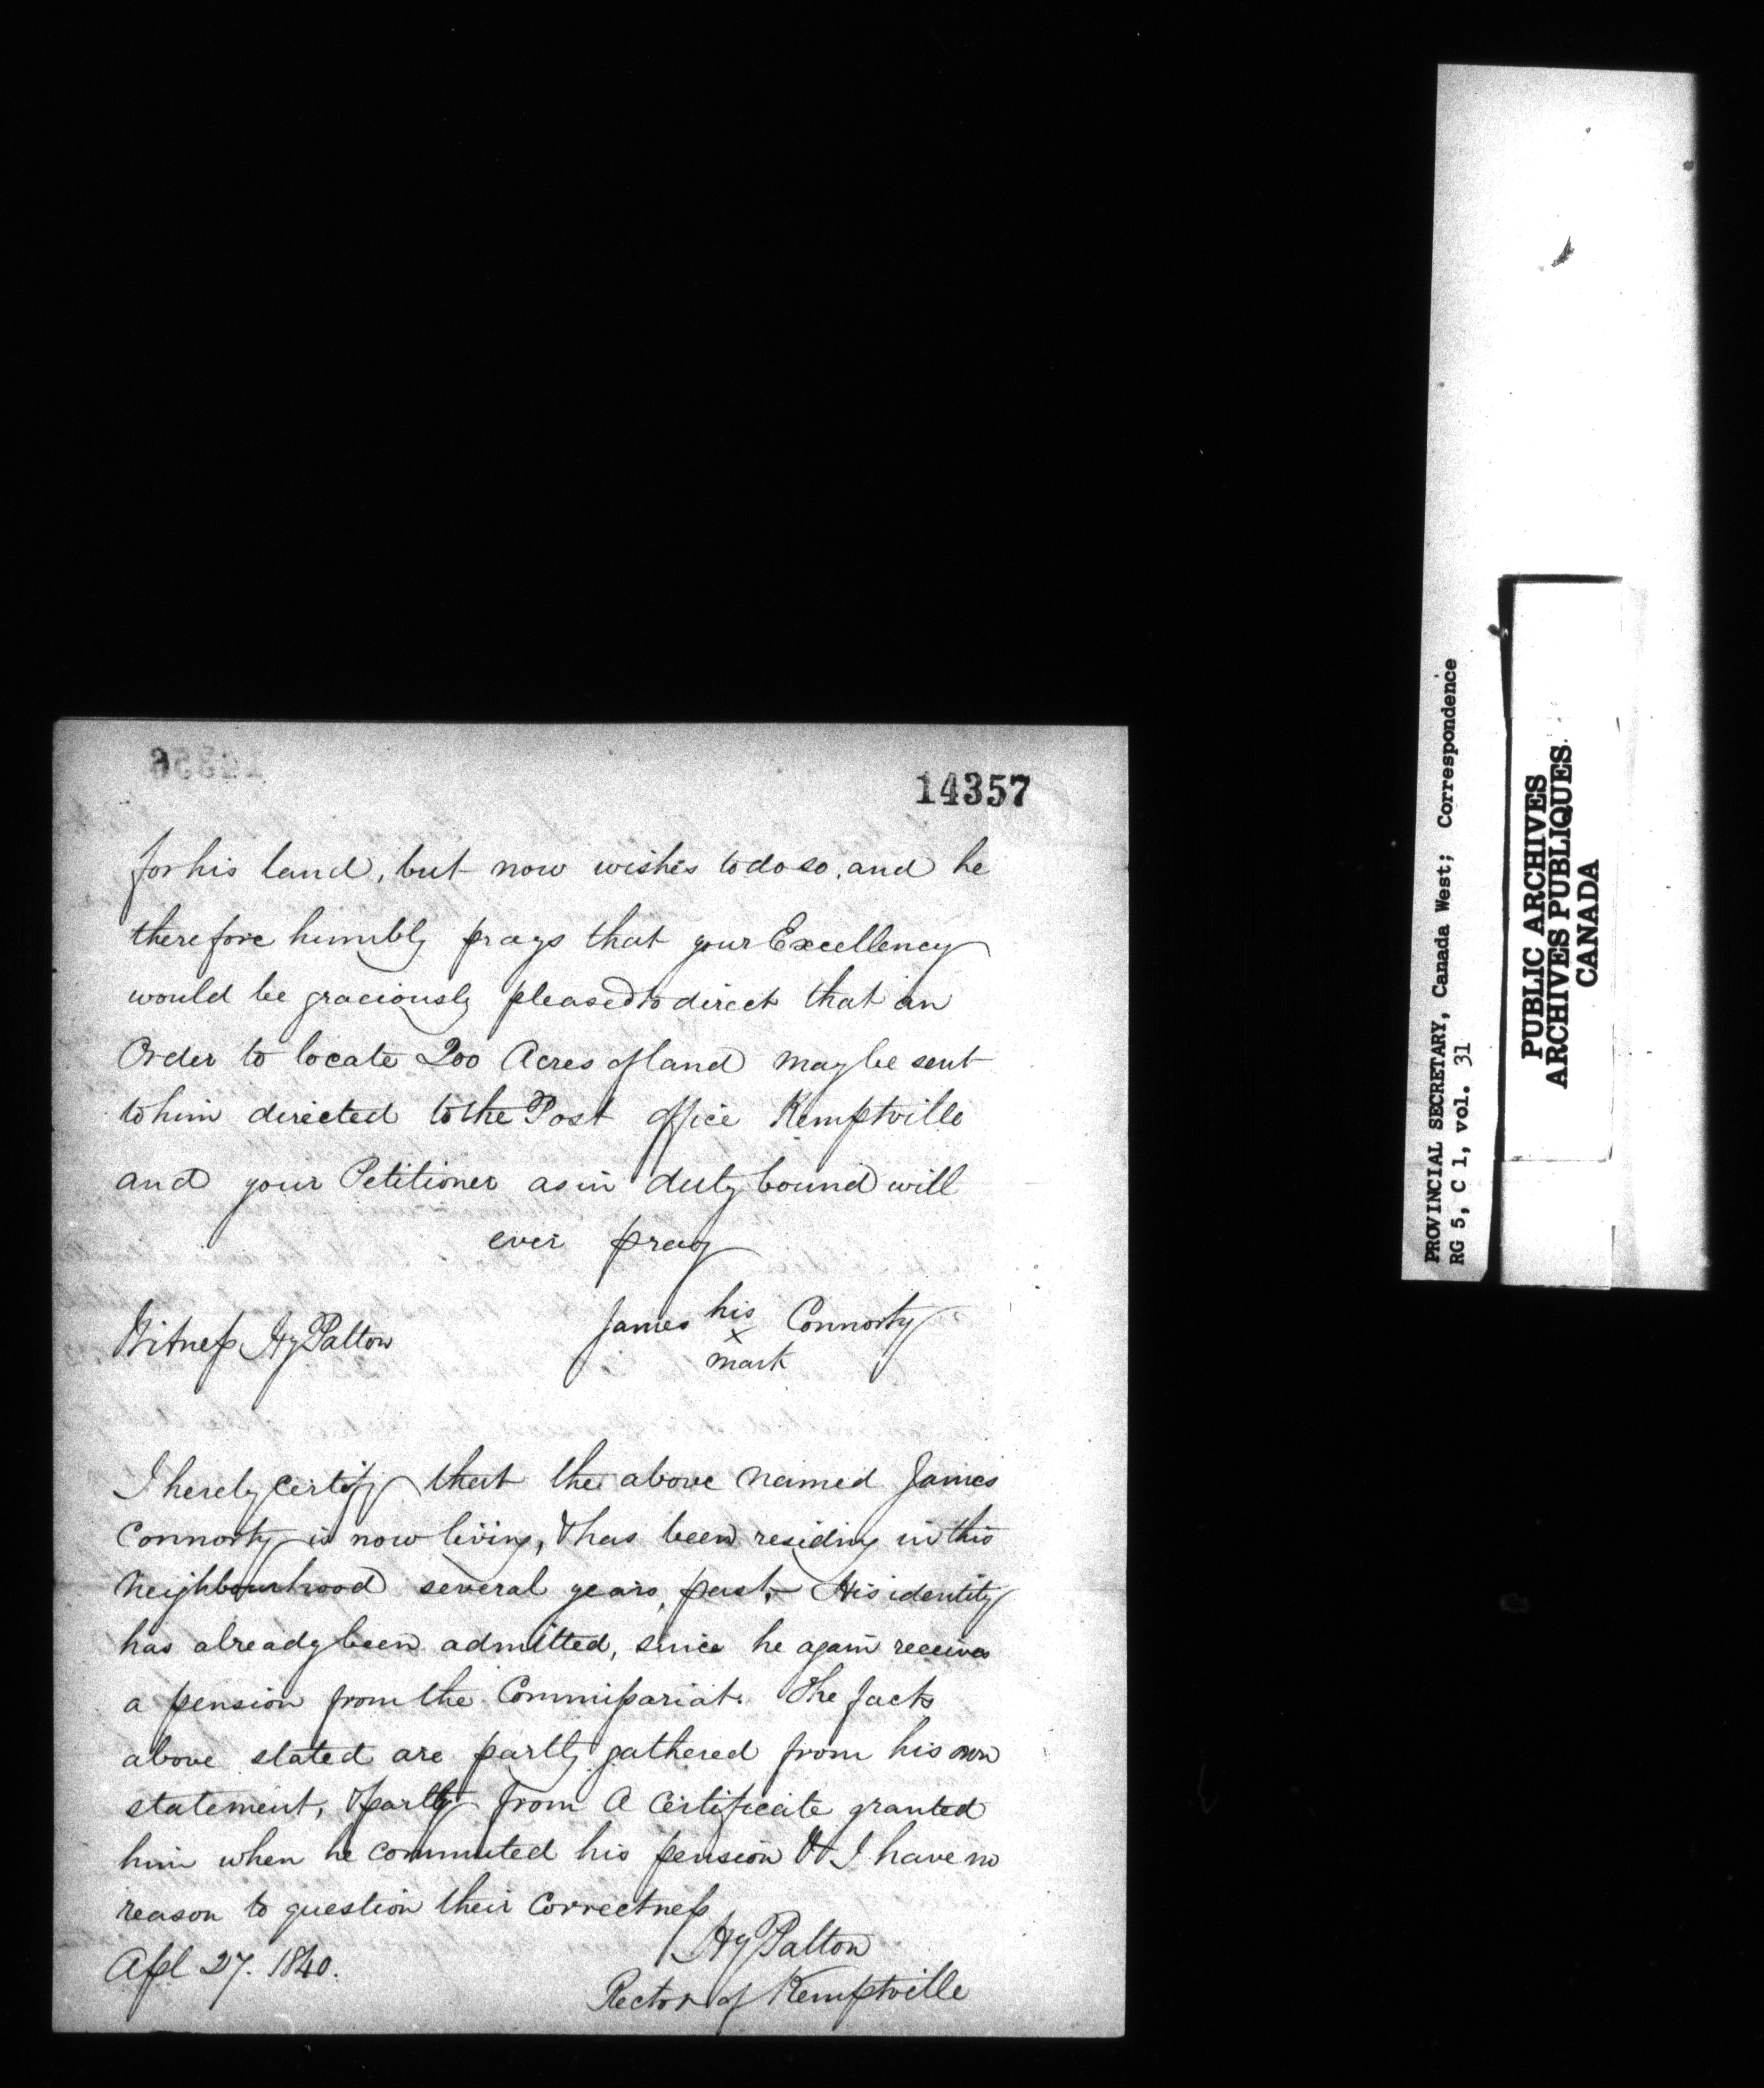 14357
for his land, but now wishes to do so, and he
therefore humbly prays that your Excellency
would be graciously pleased to direct that an
Order to locate 200 Acres of land may be sent
to him directed to the Post office Kemptville
and your Petitioner as in duty bound will
ever pray
Witness Hy Patton
James his Connorty
x
mark
I hereby certify that the above named James
Connorty is now living, & has been residing in this
Neighbourhood several years, past. His identity
has already been admitted, since he again receives
a pension from the Commissariat. The facts
above stated are partly gathered from his own
statement, & partly from a certificate granted
him when he commuted his pension & I have no
reason to question their correctness
Hy Patton
Apl 27. 1840.
Rector of Kemptville
PROVINCIAL SECRETARY, Canada West; Correspondence
RG 5, C 1, vol. 31
PUBLIC ARCHIVES
ARCHIVES PUBLIQUES
CANADA